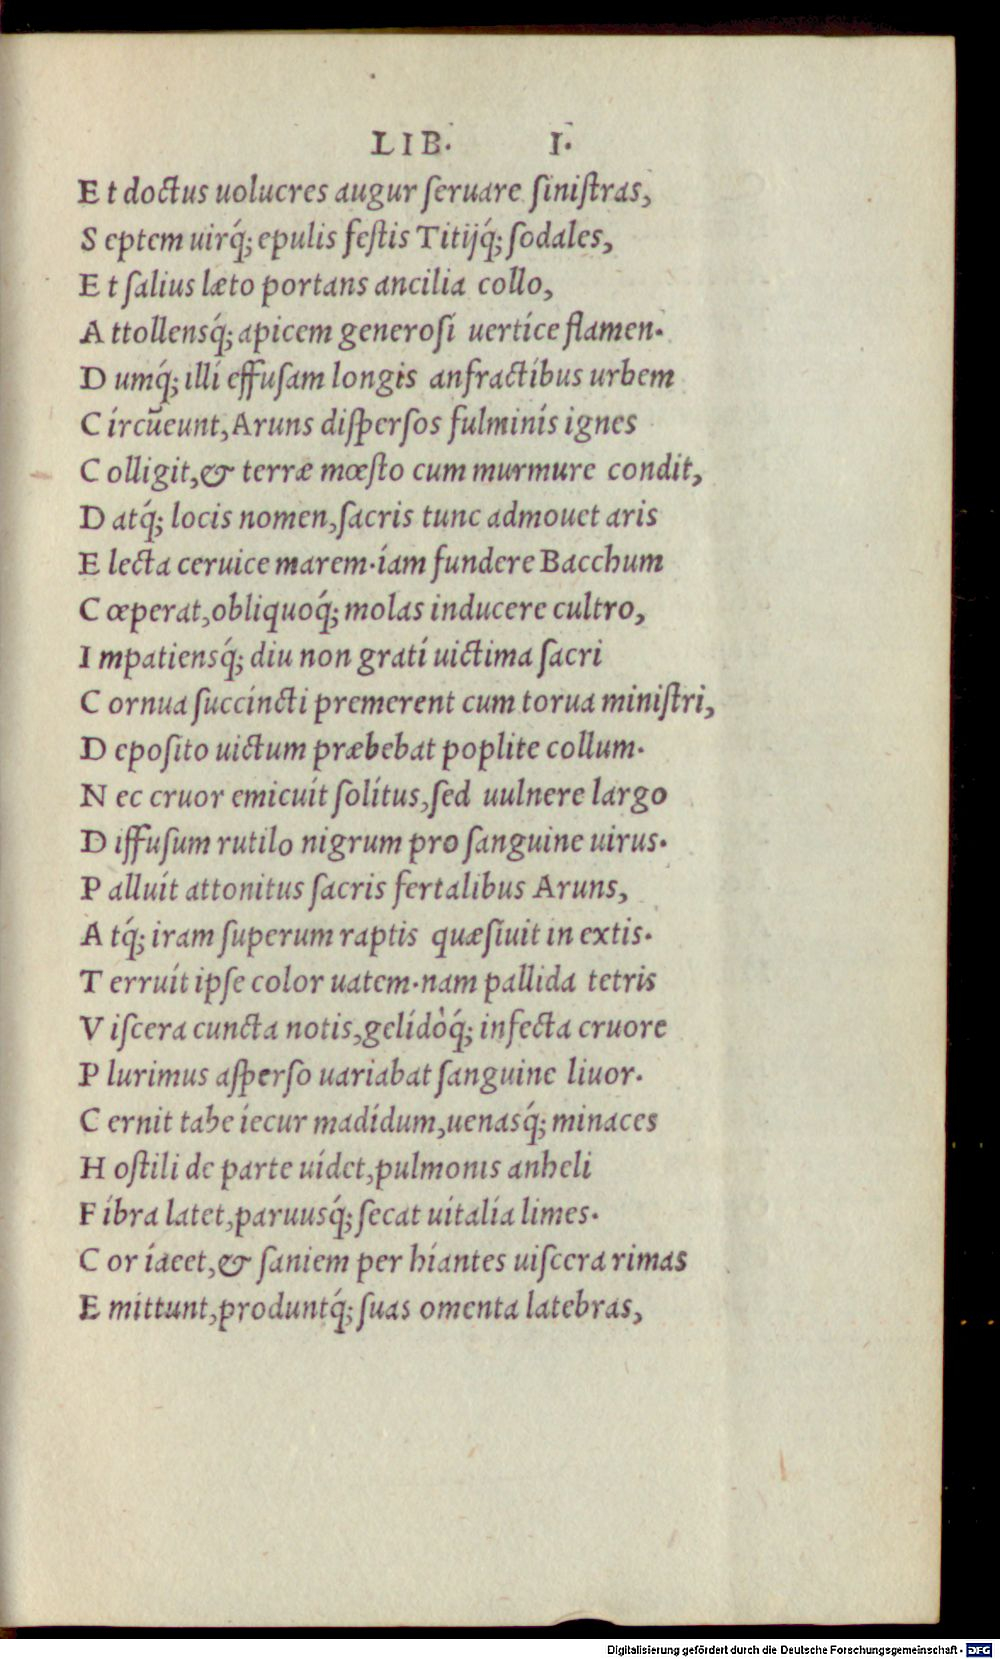 LIB. I.
E t doctus uolucres augur ſeruare ſiniſtras,
S eptem uirq́; epulis feſtis Titijq́; ſodales,
E t ſalius læto portans ancilia collo,
A ttollensq́; apicem generoſi uertice flamen.
D umq́; illi effuſam longis anfractibus urbem
C ircūeunt, Aruns diſperſos fulminis ignes
C olligit, & terræ mœſto cum murmure condit,
D atq́; locis nomen, ſacris tunc admouet aris
E lecta ceruice marem. iam fundere Bacchum
C œperat, obliquoq́; molas inducere cultro,
I mpatiensq́; diu non grati uictima ſacri
C ornua ſuccincti premerent cum torua miniſtri,
D epoſito uictum præbebat poplite collum.
N ec cruor emicuit ſolitus, ſed uulnere largo
D iffuſum rutilo nigrum pro ſanguine uirus.
P alluit attonitus ſacris fertalibus Aruns,
A tq́; iram ſuperum raptis quæſiuit in extis.
T erruit ipſe color uatem. nam pallida tetris
V iſcera cuncta notis, gelidòq́; infecta cruore
P lurimus aſperſo uariabat ſanguine liuor.
C ernit tabe iecur madidum, uenasq́; minaces
H oſtili de parte uidet, pulmonis anheli
F ibra latet, paruusq́; ſecat uitalia limes.
C or iacet, & ſaniem per hiantes uiſcera rimas
E mittunt, produntq́; ſuas omenta latebras,
Digitalisierung gefördert durch die Deutsche Forschungsgemeinschaft - DFG